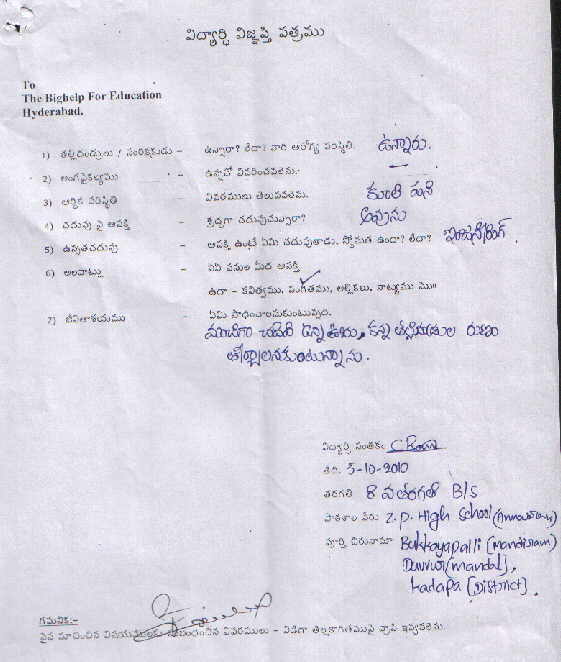 విద్యార్థి విజ్ఞప్తి పత్రము
To
The Bighelp For Education
Hyderabad.
1) తల్లిదండ్రులు / సంరక్షకుడు – ఉన్నారా? లేదా? వారి ఆరోగ్య పరిస్థితి. ఉన్నారు.
2) అంగవైకల్యము – ఉన్నచో వివరించవలెను. —
3) ఆర్థిక పరిస్థితి – వివరములు తెలుపవలెను. కూలి పని
4) చదువు పై ఆసక్తి – శ్రద్ధగా చదువుచున్నారా? అవును
5) ఉన్నతచదువు – ఆసక్తి ఉంటే ఏమి చదువుతాడు. స్థోమత ఉందా? లేదా? ఇంజనీరింగ్.
6) అలవాట్లు – ఏఏ పనుల మీద ఆసక్తి
ఉదా – కవిత్వము, సంగీతము, అల్లికలు, నాట్యము మొ॥
7) జీవితాశయము – ఏమి సాధించాలనుకుంటున్నారు.
మంచిగా చదివి ఉన్న ఊరు, కన్న తల్లిదండ్రుల రుణం
తీర్చాలనుకుంటున్నాను.
విద్యార్థి సంతకం
తేది. 5-10-2010
తరగతి 8 వ తరగతి B/S
పాఠశాల పేరు Z.P. High School
పూర్తి చిరునామా Bukkayapalli (Mandiram)
Duvvur (mandal),
Kadapa (District).
గమనిక:-
పైన సూచించిన విషయములకు సంబంధించిన వివరములు – విడిగా తెల్లకాగితముపై వ్రాసి ఇవ్వవలెను.